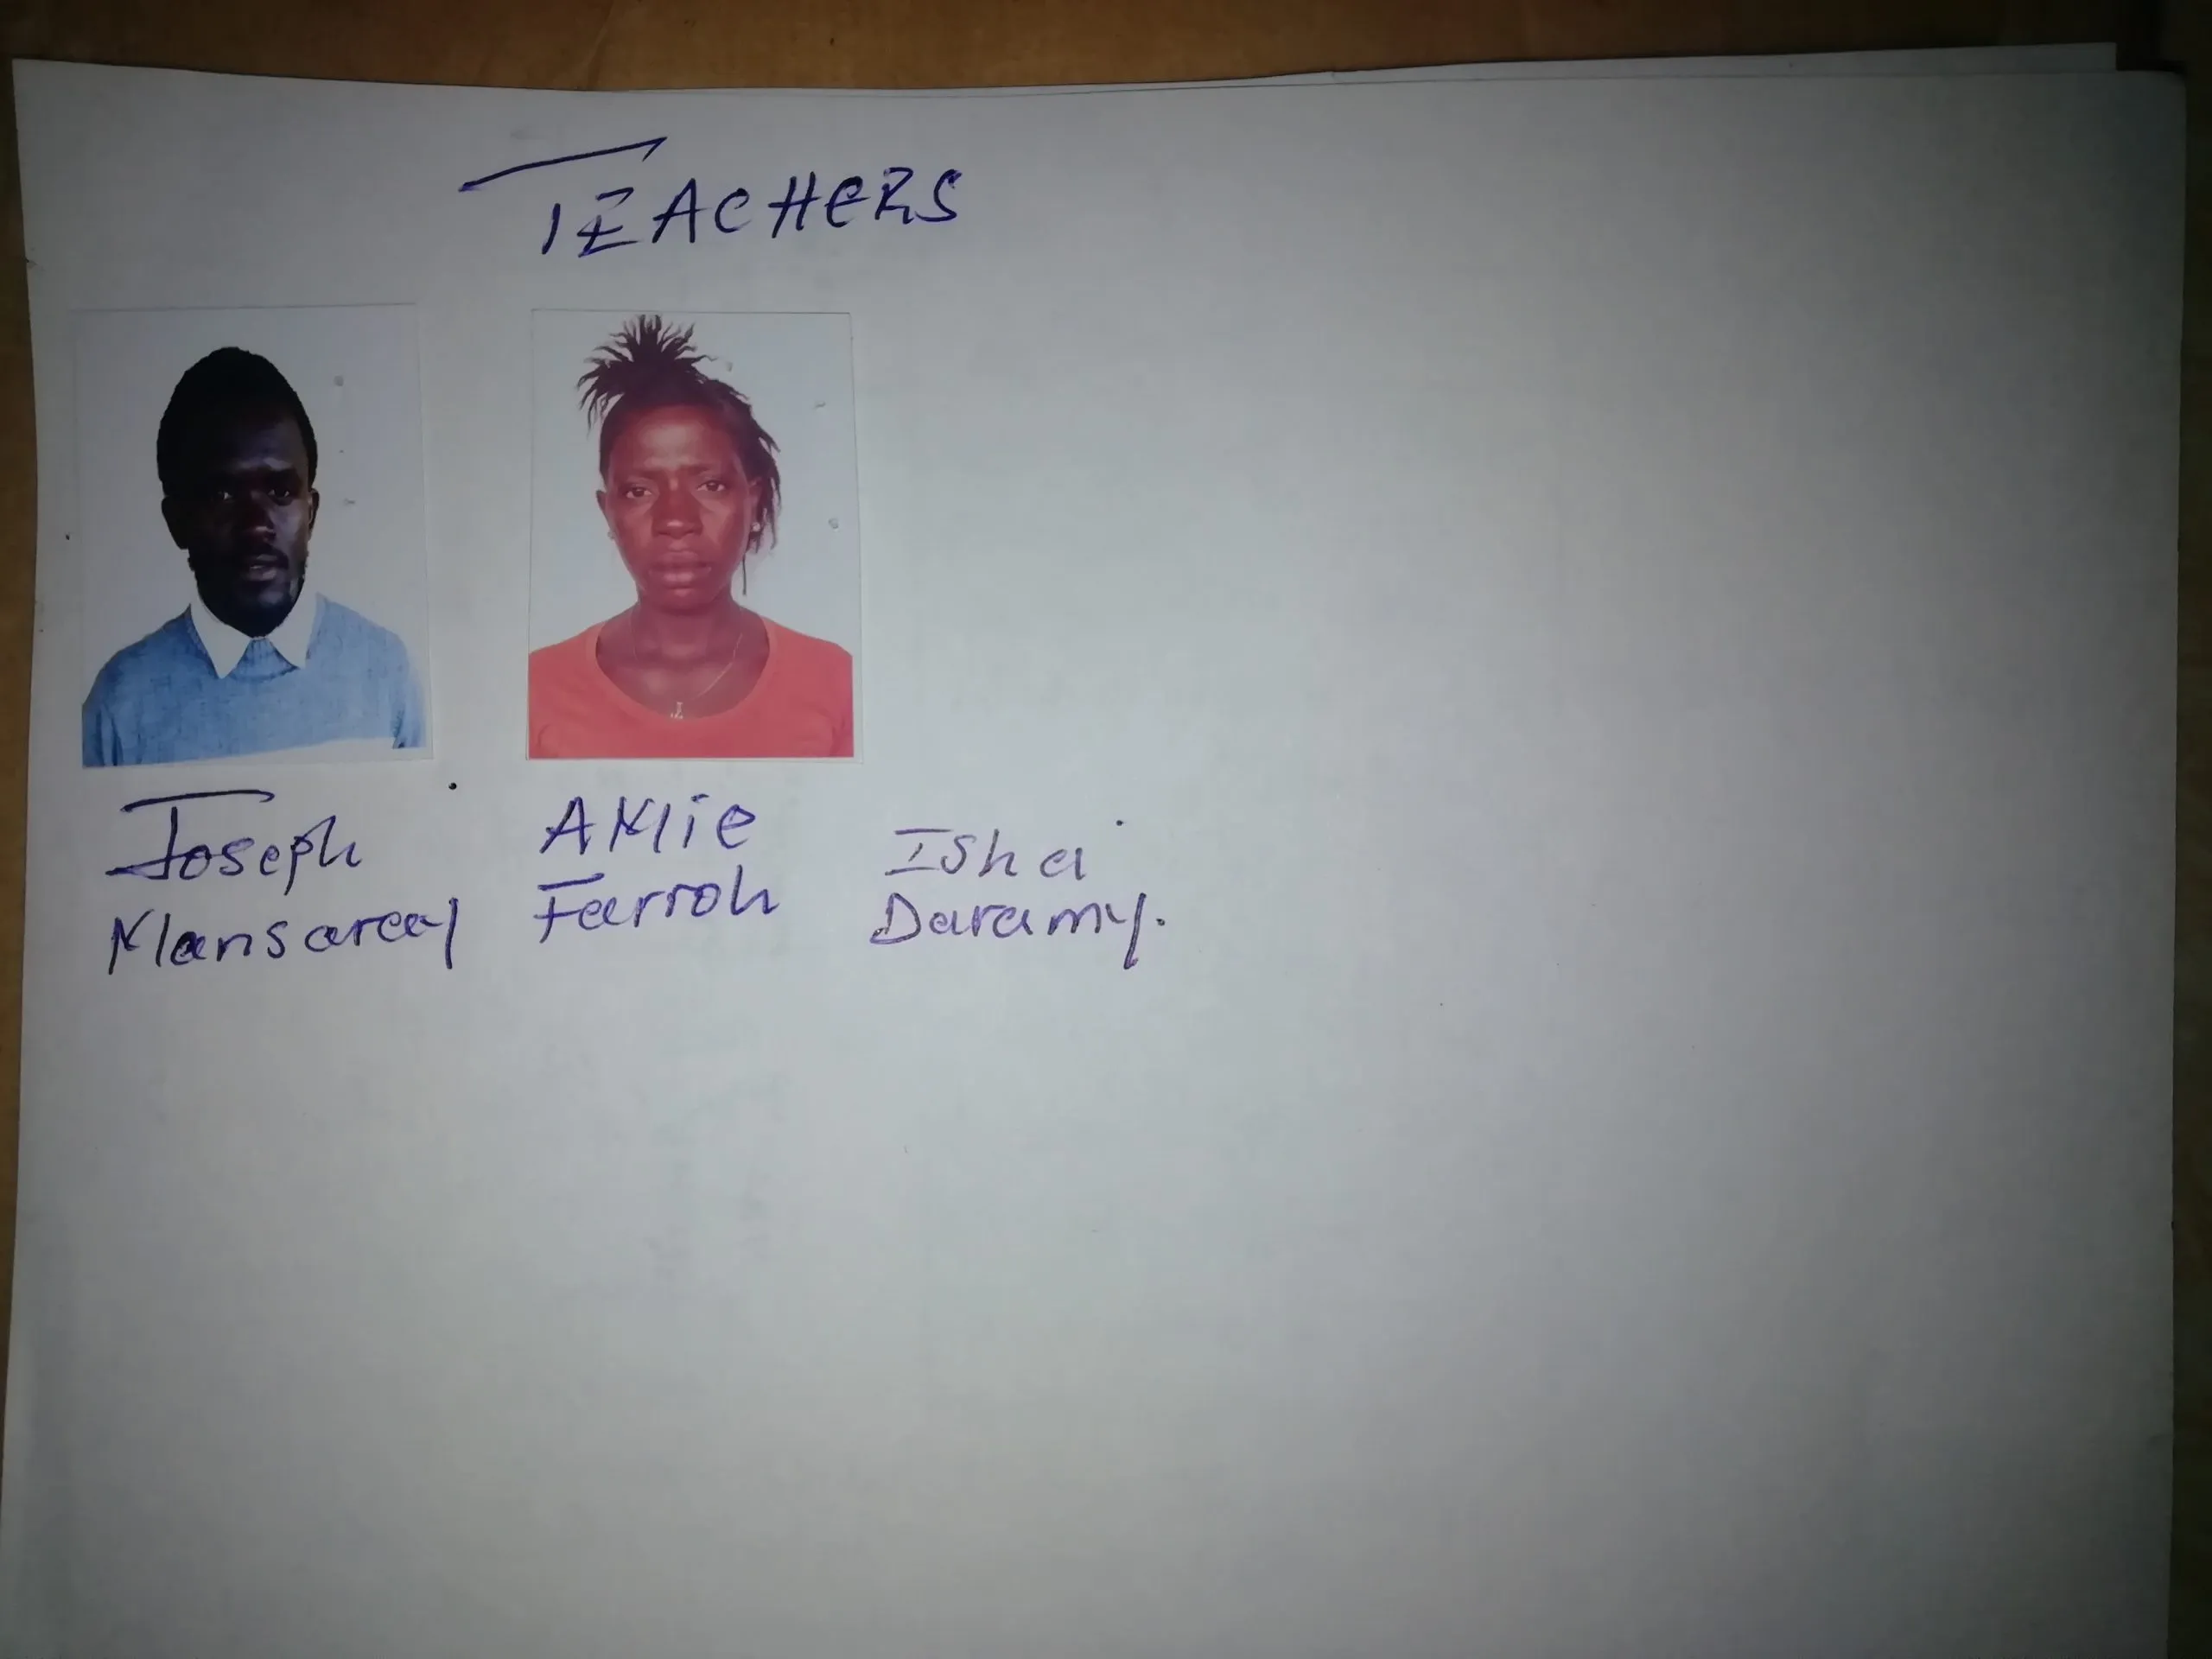 TEACHERS
Joseph
Mansaray
AMie
Farroh
Isha
Daramy.